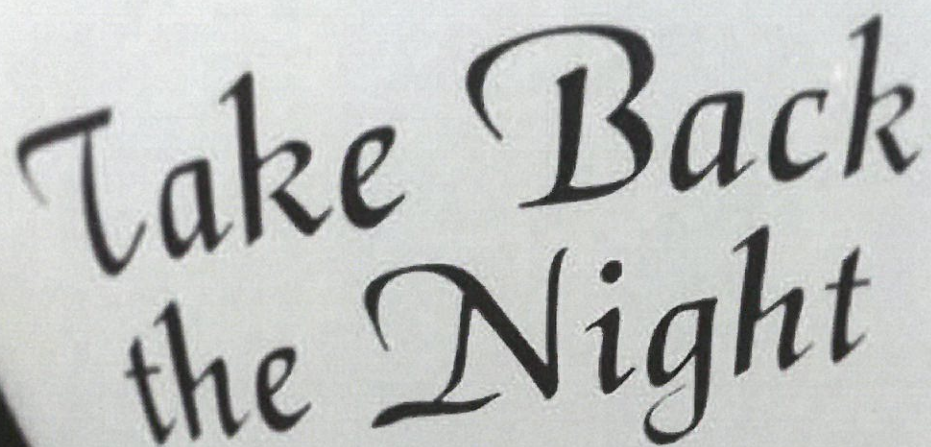 Take Back
the Night